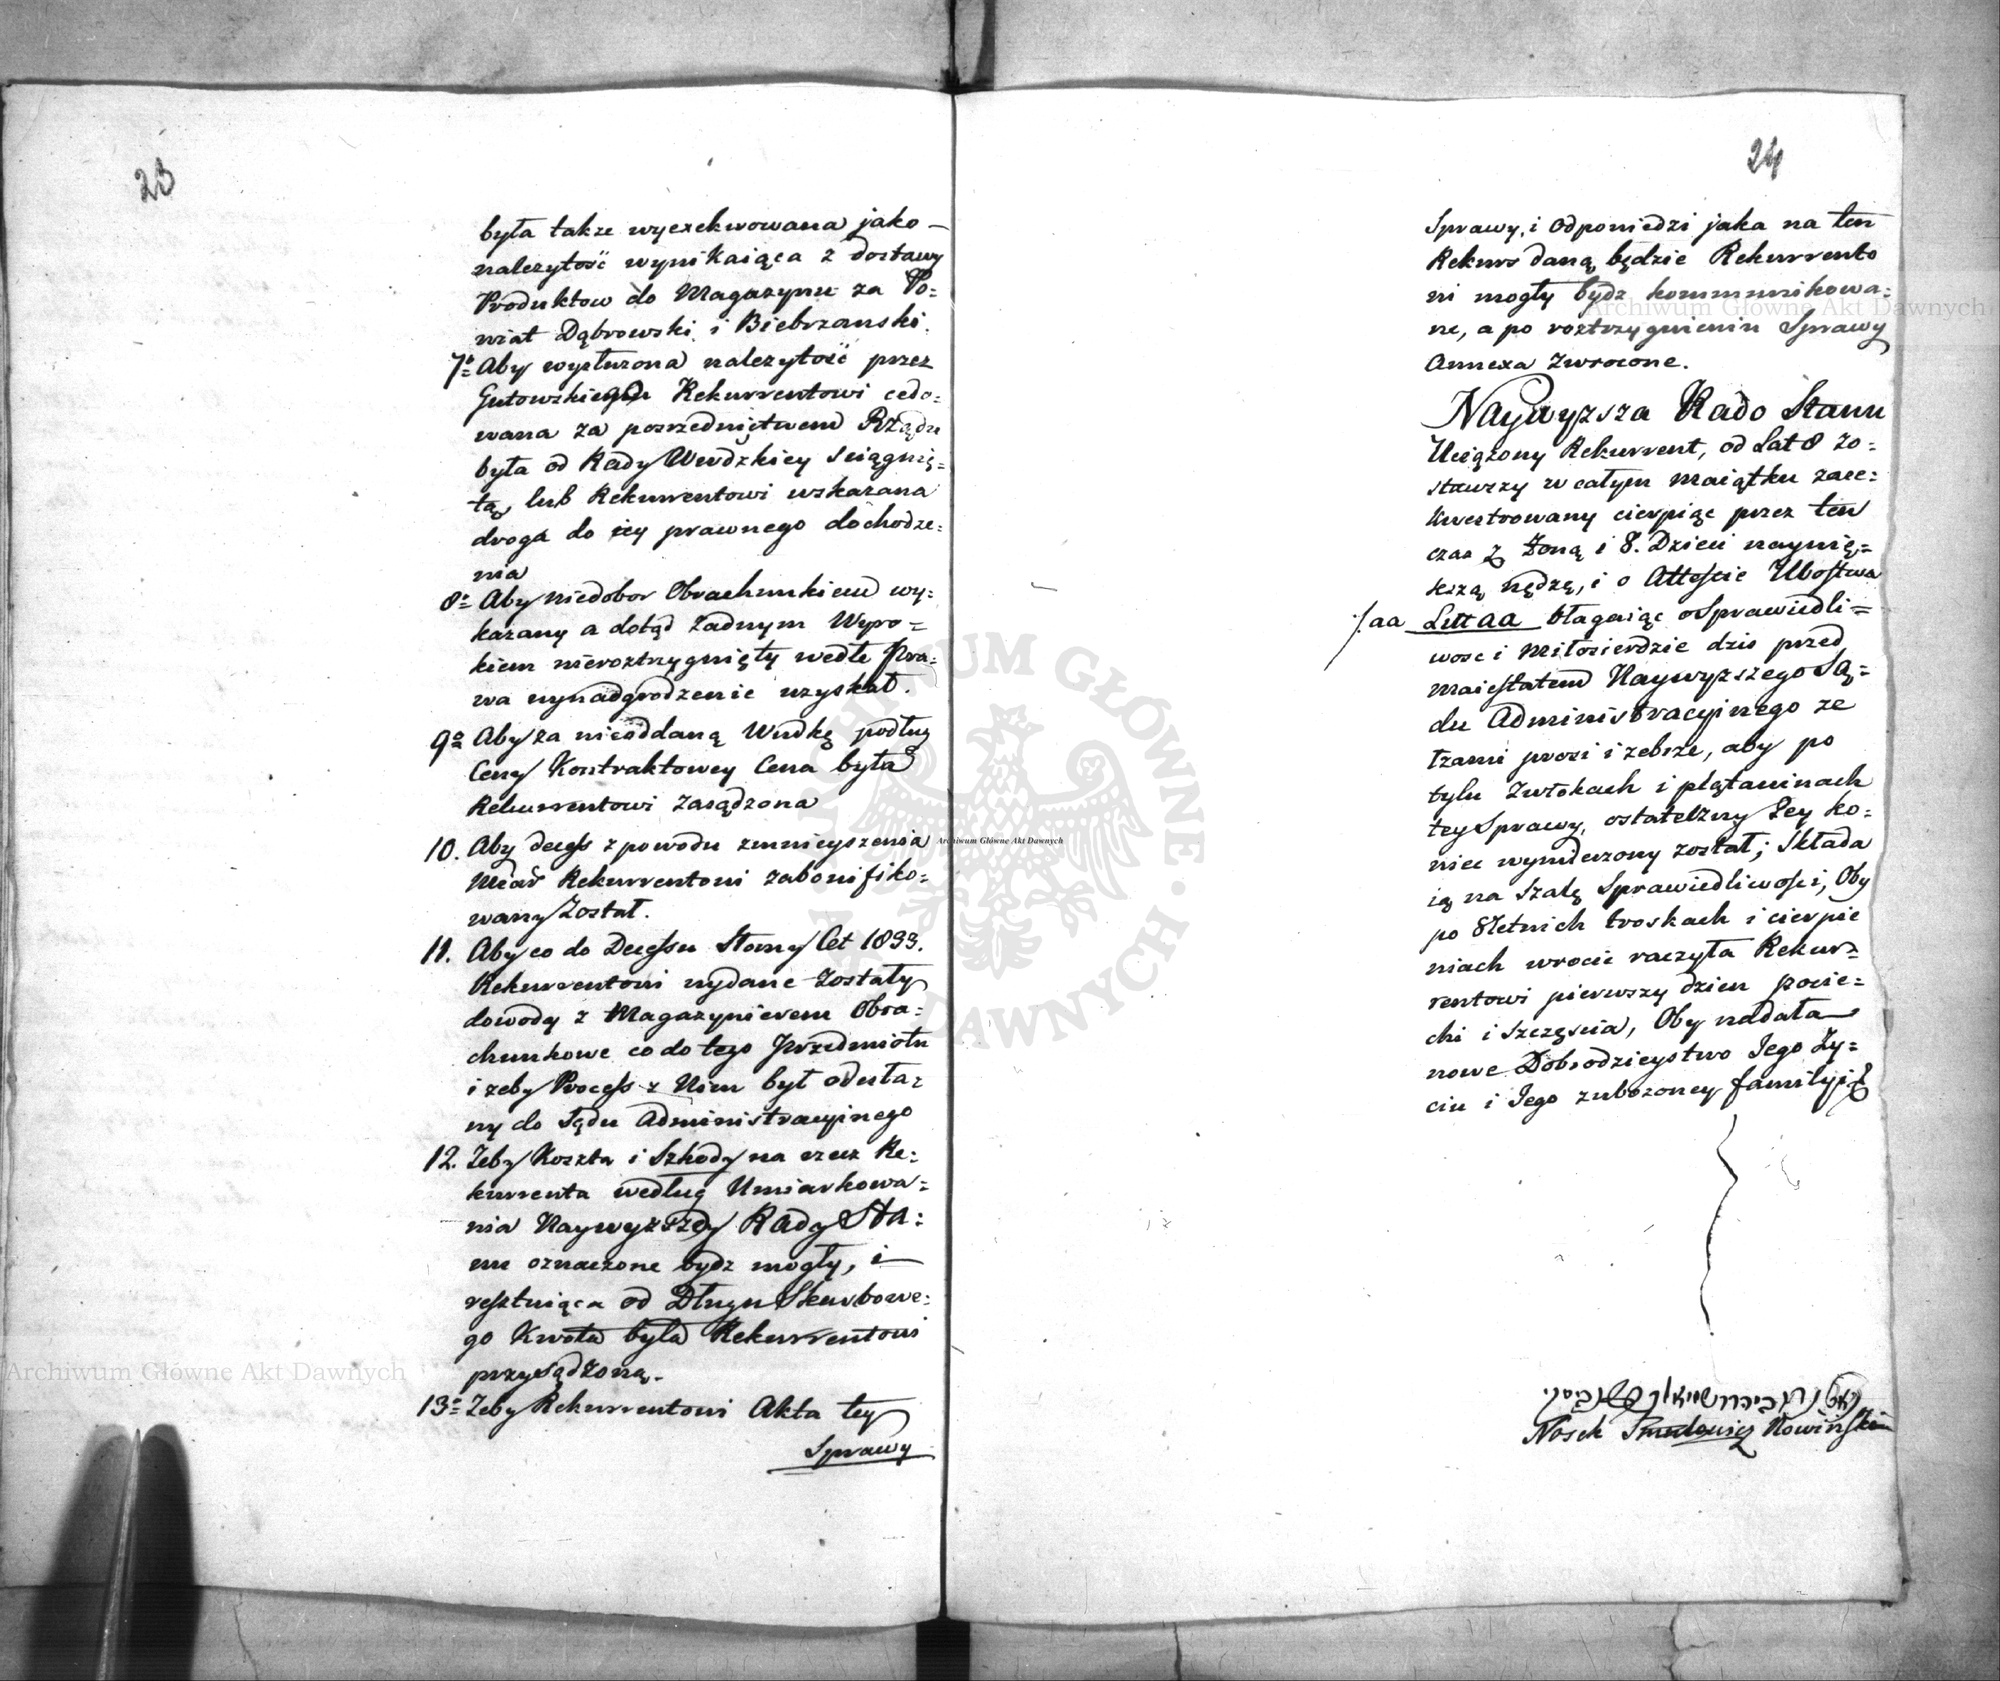 23
była także wyexekwowana jako
należytość wynikaiąca z dostawy
Produktow do Magazynu za Po=
wiat Dąbrowski i Biebrzanski.
7o= Aby wysłuzona nalezytość przez
Gutowskiego Rekurrentowi cedo=
wana za posrzednictwem Rządu
była od Rady Woiewódzkiey sciągnię=
tą, lub Rekurrentowi wskazana
droga do iey prawnego dochodze=
nia
8o= Aby niedobor Obrachunkiem wy=
kazany a dotąd żadnym Wyro=
kiem nieroztrzygnięty wedle Pra=
wa wynadgrodzenie uzyskał.
9o= Aby za nieoddaną Wudkę podług
Ceny Kontraktowey Cena była
Rekurrentowi zasądzona
10. Aby decess z powodu zmnieyszenia
Miar Rekurrentowi zabonifiko=
wany został.
11. Aby co do Decessu Słomy Cet 1833.
Rekurrentowi wydane zostały
dowody z Magazynierem Obra=
chunkowe co do tego Przedmiotu
i zeby Process z Nim był odesła=
ny do Sądu Administracyinego
12. Żeby Koszta i Szkody na rzecz Re=
kurrenta według Umiarkowa=
nia Naywyższey Rady Sta=
nu oznaczone bydz mogły, i
resztuiąca od Długu Skarbowe=
go Kwota była Rekurrentowi
przysądzoną.
13o= Żeby Rekurrentowi Akta tey
Sprawy
24
Sprawy, i Odpowiedzi jaka na ten
Rekurs daną będzie Rekurrento
wi mogły bydz kommunikowa=
ne, a po roztrzygnieniu Sprawy
Annexa zwrocone.
Naywyzsza Rado Stanu
Uciążony Rekurrent, od Lat 8 zo=
stawszy w całym maiątku zase=
kwestrowany cierpiąc przez ten
czas z Żoną i 8. Dzieci naywię=
kszą nędzę, i o Attescie Ubostwa
./. aa Litt aa błagaiąc o Sprawiedli=
wosc i Miłosierdzie dzis przed
maiestatem Naywyzszego Są=
du Administracyinego ze
łzami prosi i zebrze, aby po
tylu Zwłokach i plątaninach
tey Sprawy, ostateczny Jey ko=
niec wymierzony został; Składa
ią na Szalę Sprawiedliwości, Oby
po 8letnich troskach i cierpie
niach wrocic raczyła Rekur=
rentowi pierwszy dzien pocie=
chi i szczęscia, Oby nadała
nowe Dobrodzieystwo Jego Ży=
ciu i Jego zubozoney familyi
Nosek Nowiński
Archiwum Główne Akt Dawnych
Archiwum Główne Akt Dawnych
Archiwum Główne Akt Dawnych
ARCHIWUM GŁÓWNE AKT DAWNYCH